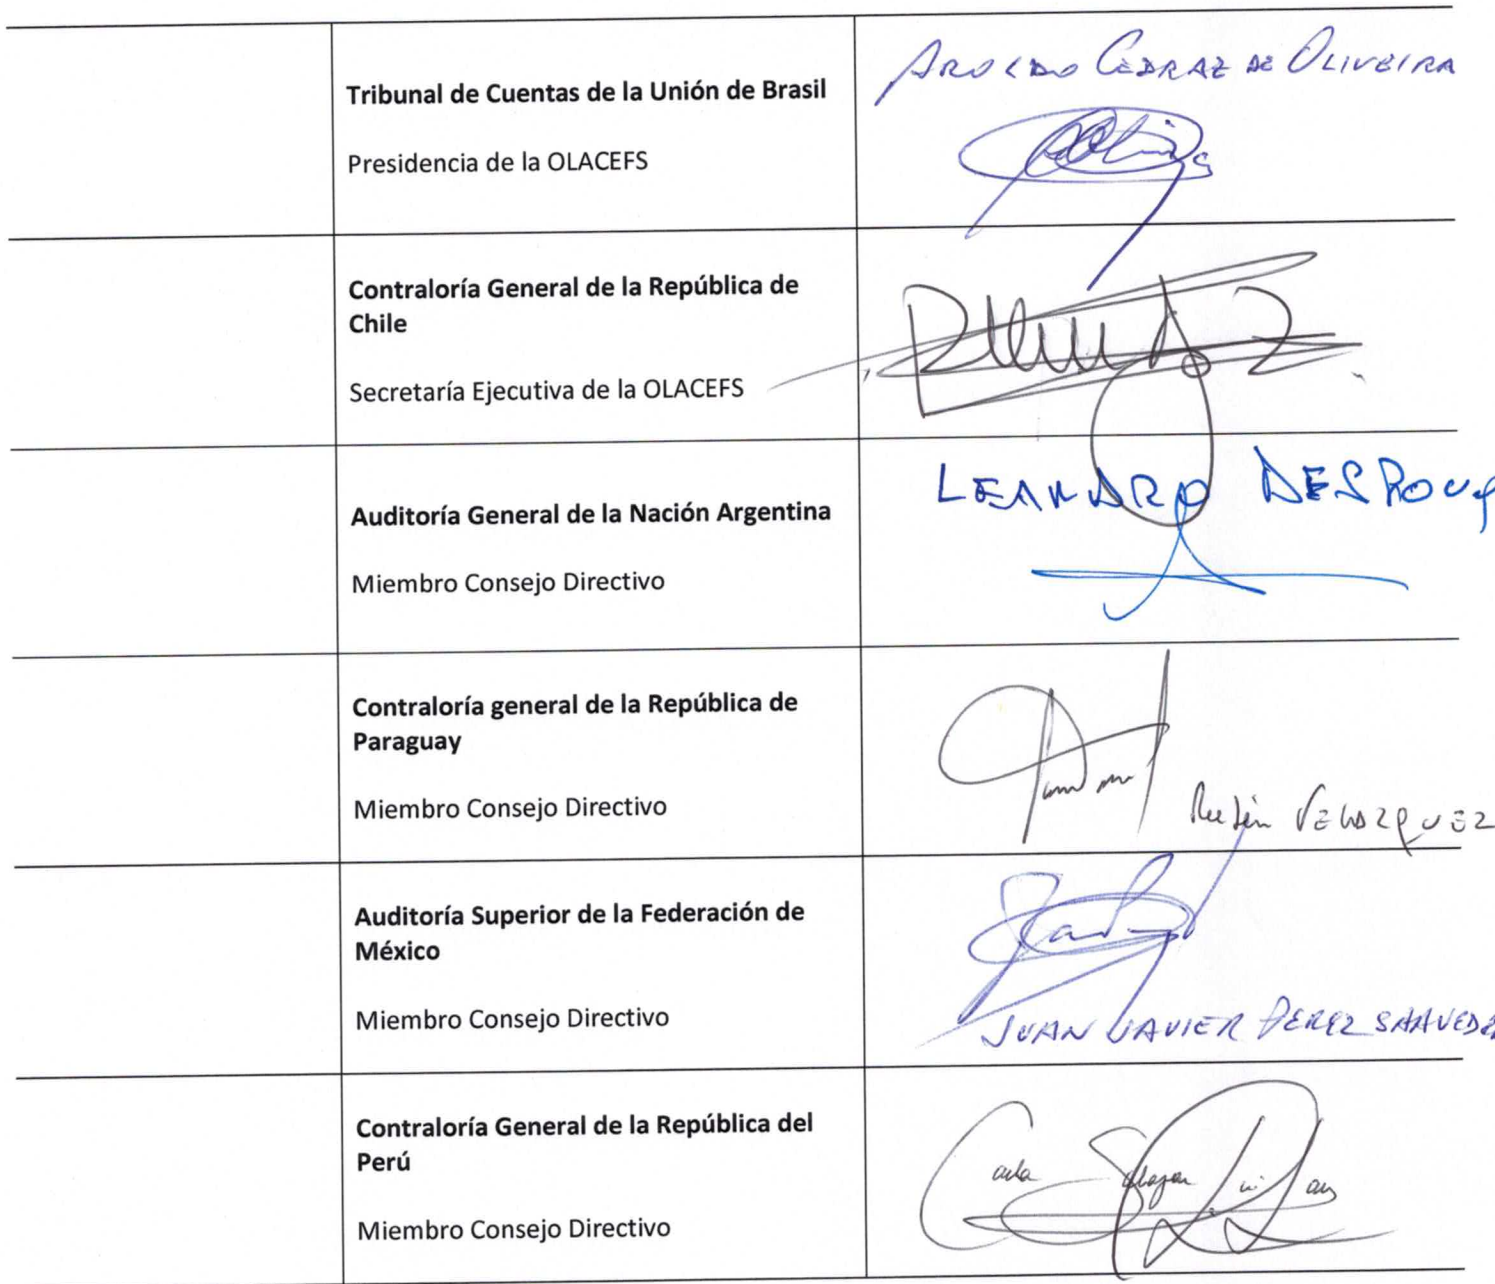 Tribunal de Cuentas de la Unión de Brasil
Presidencia de la OLACEFS
AROLDO CEDRAZ DE OLIVEIRA
Contraloría General de la República de
Chile
Secretaría Ejecutiva de la OLACEFS
Auditoría General de la Nación Argentina
Miembro Consejo Directivo
LEANDRO DESPOUY
Contraloría general de la República de
Paraguay
Miembro Consejo Directivo
Rubén VELAZQUEZ
Auditoría Superior de la Federación de
México
Miembro Consejo Directivo
JUAN JAVIER PEREZ SAAVEDRA
Contraloría General de la República del
Perú
Miembro Consejo Directivo
Carla Salazar